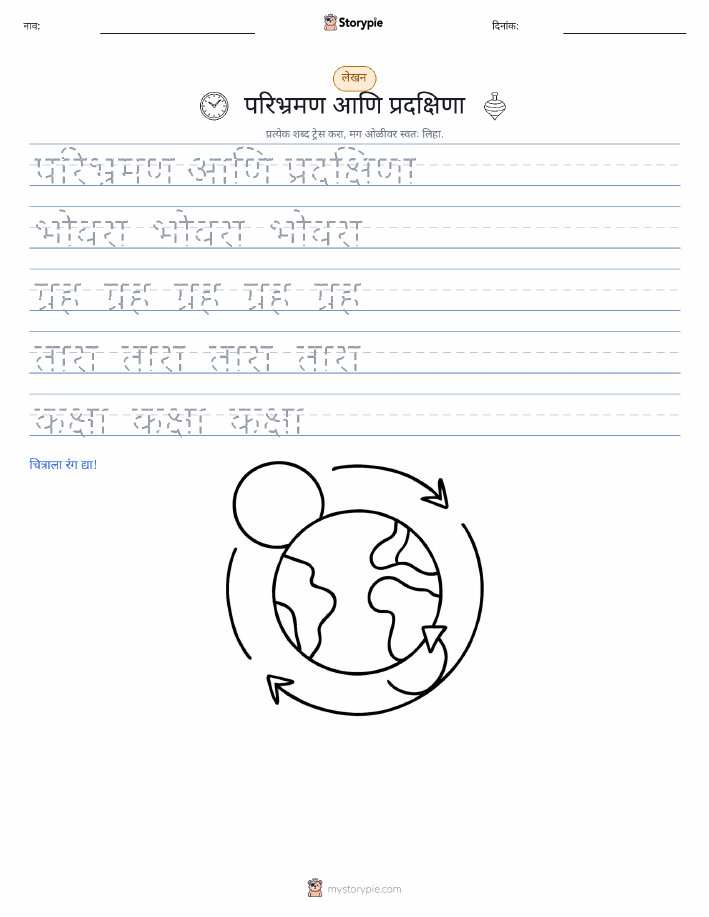 नाव:
Storypie
दिनांक:
लेखन
परिभ्रमण आणि प्रदक्षिणा
प्रत्येक शब्द ट्रेस करा, मग ओळीवर स्वतः लिहा.
परिभ्रमण आणि प्रदक्षिणा
भोवरा भोवरा भोवरा
ग्रह ग्रह ग्रह ग्रह ग्रह
तारा तारा तारा तारा
कक्षा कक्षा कक्षा
चित्राला रंग द्या!
mystorypie.com